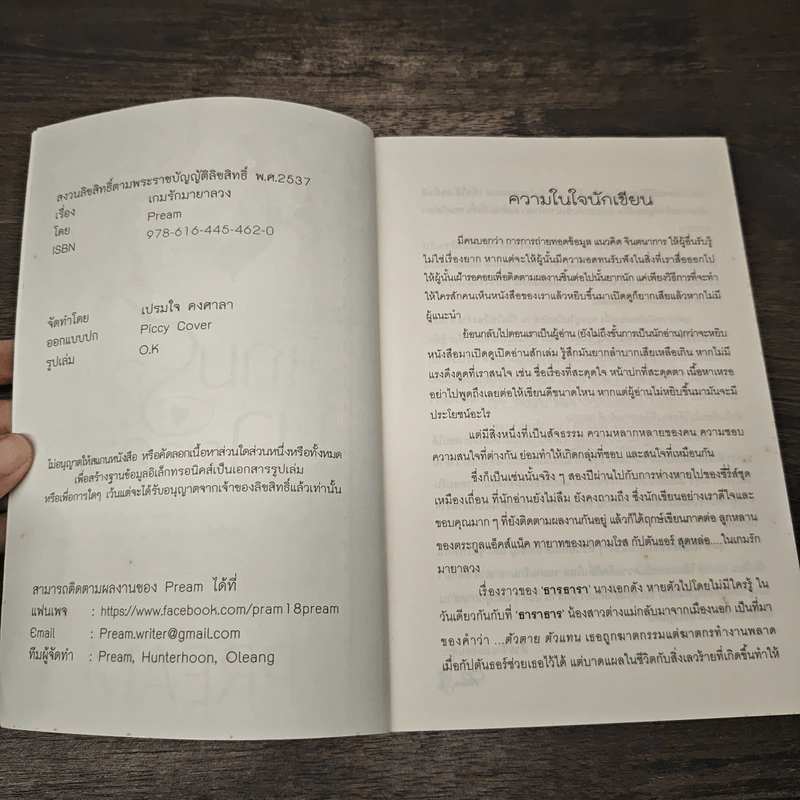 สงวนลิขสิทธิ์ตามพระราชบัญญัติลิขสิทธิ์ พ.ศ.2537
เรื่อง เกมรักมายาลวง
โดย Pream
ISBN 978-616-445-462-0
จัดทำโดย เปรมใจ คงศาลา
ออกแบบปก Piccy Cover
รูปเล่ม O.K
ไม่อนุญาตให้สแกนหนังสือ หรือคัดลอกเนื้อหาส่วนใดส่วนหนึ่งหรือทั้งหมด
เพื่อสร้างฐานข้อมูลอิเล็กทรอนิคส์เป็นเอกสารรูปเล่ม
หรือเพื่อการใดๆ เว้นแต่จะได้รับอนุญาตจากเจ้าของลิขสิทธิ์แล้วเท่านั้น
สามารถติดตามผลงานของ Pream ได้ที่
แฟนเพจ : https://www.facebook.com/pram18pream
Email : Pream.writer@gmail.com
ทีมผู้จัดทำ : Pream, Hunterhoon, Oleang
ความในใจนักเขียน
มีคนบอกว่า การการถ่ายทอดข้อมูล แนวคิด จินตนาการ ให้ผู้อื่นรับรู้
ไม่ใช่เรื่องยาก หากแต่จะให้ผู้นั้นมีความอดทนรับฟังในสิ่งที่เราสื่อออกไป
ให้ผู้นั้นเฝ้ารอคอยเพื่อติดตามผลงานชิ้นต่อไปนั้นยากนัก แค่เพียงวิธีการที่จะทำ
ให้ใครสักคนเห็นหนังสือของเราแล้วหยิบขึ้นมาเปิดดูก็ยากเสียแล้วหากไม่มี
ผู้แนะนำ
ย้อนกลับไปตอนเราเป็นผู้อ่าน (ยังไม่ถึงขั้นการเป็นนักอ่าน)กว่าจะหยิบ
หนังสือมาเปิดดูเปิดอ่านสักเล่ม รู้สึกมันยากลำบากเสียเหลือเกิน หากไม่มี
แรงดึงดูดที่เราสนใจ เช่น ชื่อเรื่องที่สะดุดใจ หน้าปกที่สะดุดตา เนื้อหาเหรอ
อย่าไปพูดถึงเลยต่อให้เขียนดีขนาดไหน หากแต่ผู้อ่านไม่หยิบขึ้นมามันจะมี
ประโยชน์อะไร
แต่มีสิ่งหนึ่งที่เป็นสัจธรรม ความหลากหลายของคน ความชอบ
ความสนใจที่ต่างกัน ย่อมทำให้เกิดกลุ่มที่ชอบ และสนใจที่เหมือนกัน
ซึ่งก็เป็นเช่นนั้นจริง ๆ สองปีผ่านไปกับการห่างหายไปของซีรีส์ชุด
เหมืองเถื่อน ที่นักอ่านยังไม่ลืม ยังคงถามถึง ซึ่งนักเขียนอย่างเราดีใจและ
ขอบคุณมาก ๆ ที่ยังติดตามผลงานกันอยู่ แล้วก็ได้ฤกษ์เขียนภาคต่อ ลูกหลาน
ของตระกูลแอ็คส์แน็ค ทายาทของมาดามโรส กัปตันธอร์ สุดหล่อ....ในเกมรัก
มายาลวง
เรื่องราวของ 'ธารธารา' นางเอกดัง หายตัวไปโดยไม่มีใครรู้ ใน
วันเดียวกันกับที่ 'ธาราธาร' น้องสาวต่างแม่กลับมาจากเมืองนอก เป็นที่มา
ของคำว่า ...ตัวตาย ตัวแทน เธอถูกฆาตกรรมแต่ฆาตกรทำงานพลาด
เมื่อกัปตันธอร์ช่วยเธอไว้ได้ แต่บาดแผลในชีวิตกับสิ่งเลวร้ายที่เกิดขึ้นทำให้